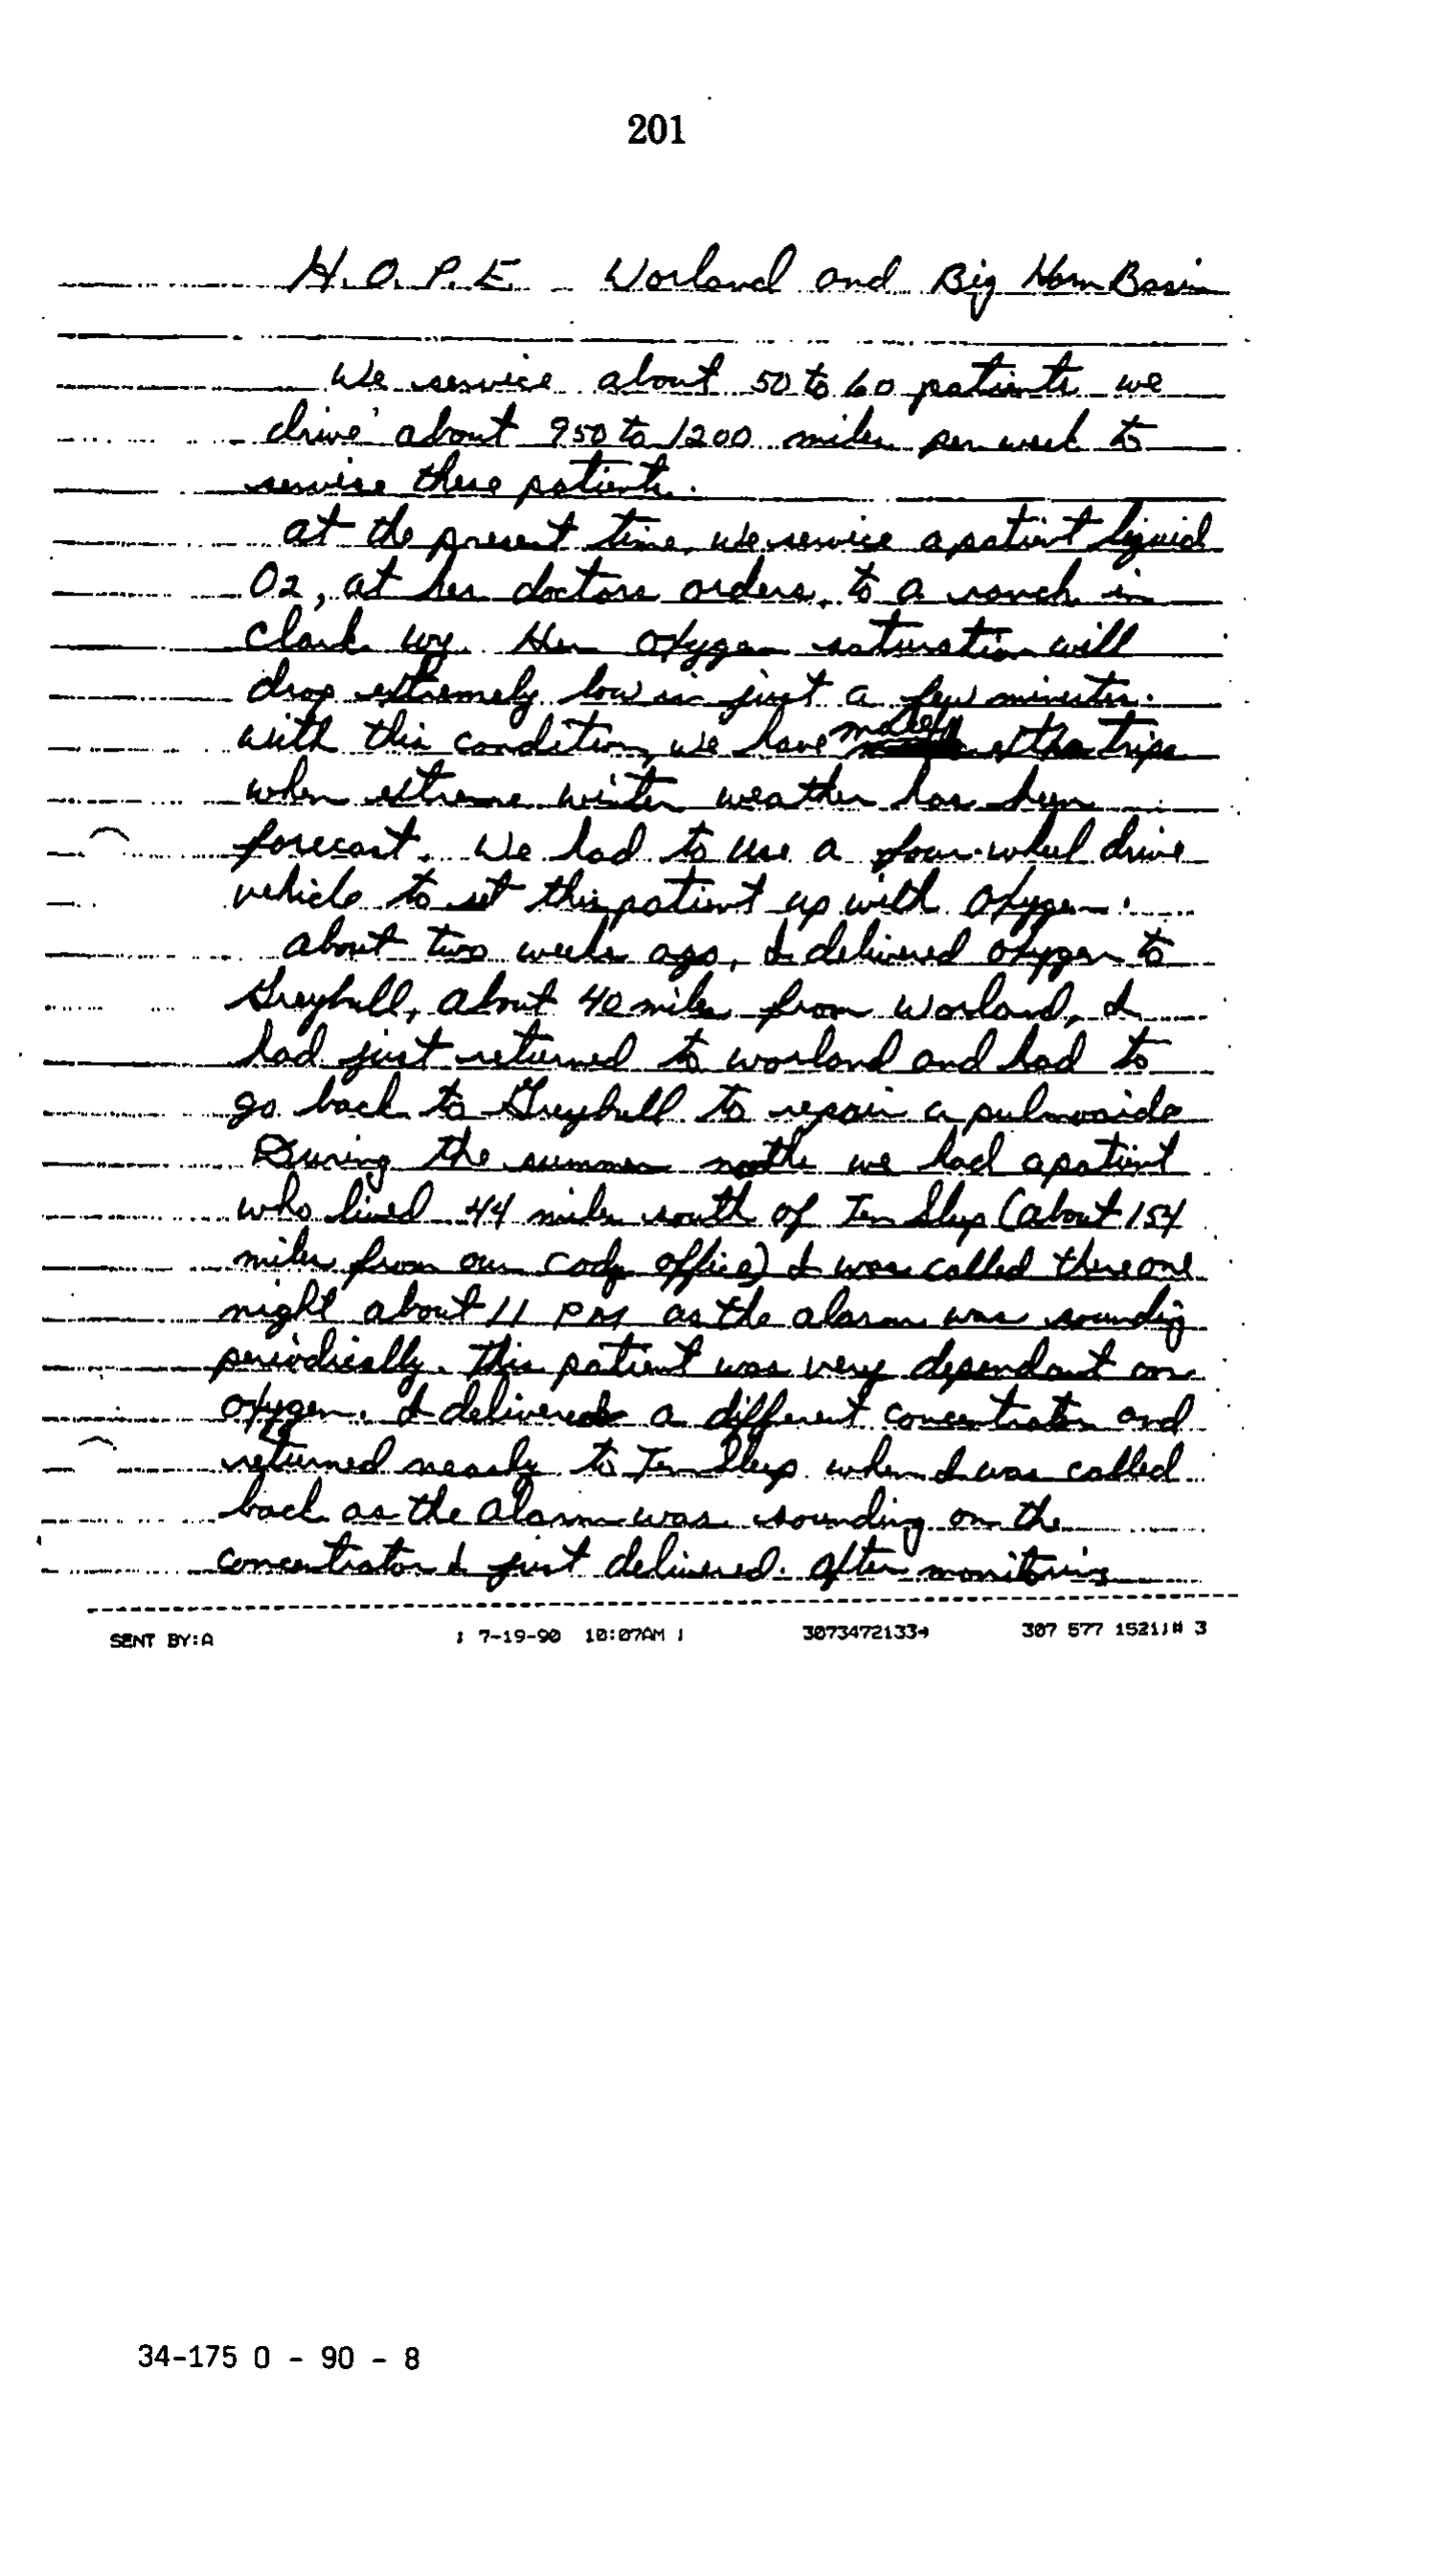 201
H.O.P.E - Worland and Big Horn Basin
We service about 50 to 60 patients we
drive about 950 to 1200 miles per week to
service these patients.
at the present time, we service a patient liquid
O2, at her doctors orders, to a ranch in
Clark Wy. Her oxygen saturation will
drop extremely low in just a few minutes.
with this condition, we have made extra trips
when extreme winter weather has been
forecast. We had to use a four-wheel drive
vehicle to set this patient up with oxygen.
about two weeks ago, I delivered oxygen to
Greybull, about 40 miles from Worland, I
had just returned to worland and had to
go back to Greybull to repair a pulmoaide
During the summer we had a patient
who lived 44 miles south of Ten Sleep (about 154
miles from our Cody office) I was called there one
night about 11 PM as the alarm was sounding
periodically. This patient was very dependant on
oxygen. I delivered a different concentrator and
returned nearly to Ten Sleep when I was called
back as the alarm was sounding on the
concentrator I just delivered. After monitoring
SENT BY:A ; 7-19-90 10:07AM ; 3073472133→ 307 577 1521;# 3
34-175 0 - 90 - 8